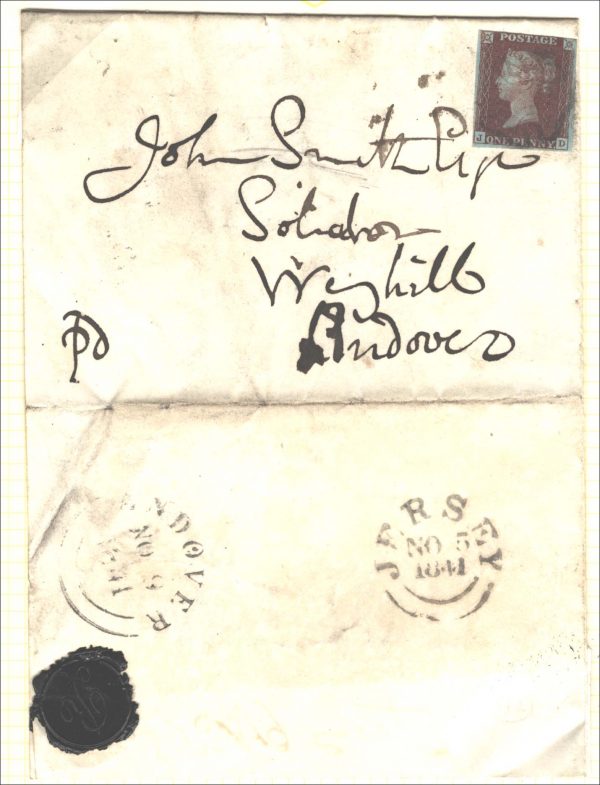 POSTAGE
J ONE PENNY D
John Smith Esqr
Solicitor
Weyhill
Andover
pd
ANDOVER
NO
1841
JERSEY
NO 5
1841